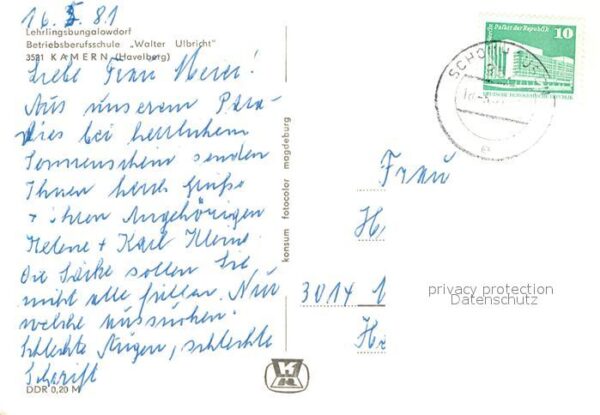 16.5.81
Lehrlingsbungalowdorf
Betriebsberufsschule „Walter Ulbricht"
3521 KAMERN (Havelberg)
Liebe Frau
Aus unserem Para-
dies bei herrlichem
Sonnenschein senden
Ihnen herzl. Grüße
+ ihren Angehörigen
Helene + Karl
Die Säcke sollen Sie
nicht alle füllen. Nur
welche aussuchen.
Schlechte Augen, schlechte
Schrift
DDR 0,20 M
konsum fotocolor magdeburg
Palast der Republik
10
DEUTSCHE DEMOKRATISCHE REPUBLIK
Frau
H
3014
H
privacy protection
Datenschutz